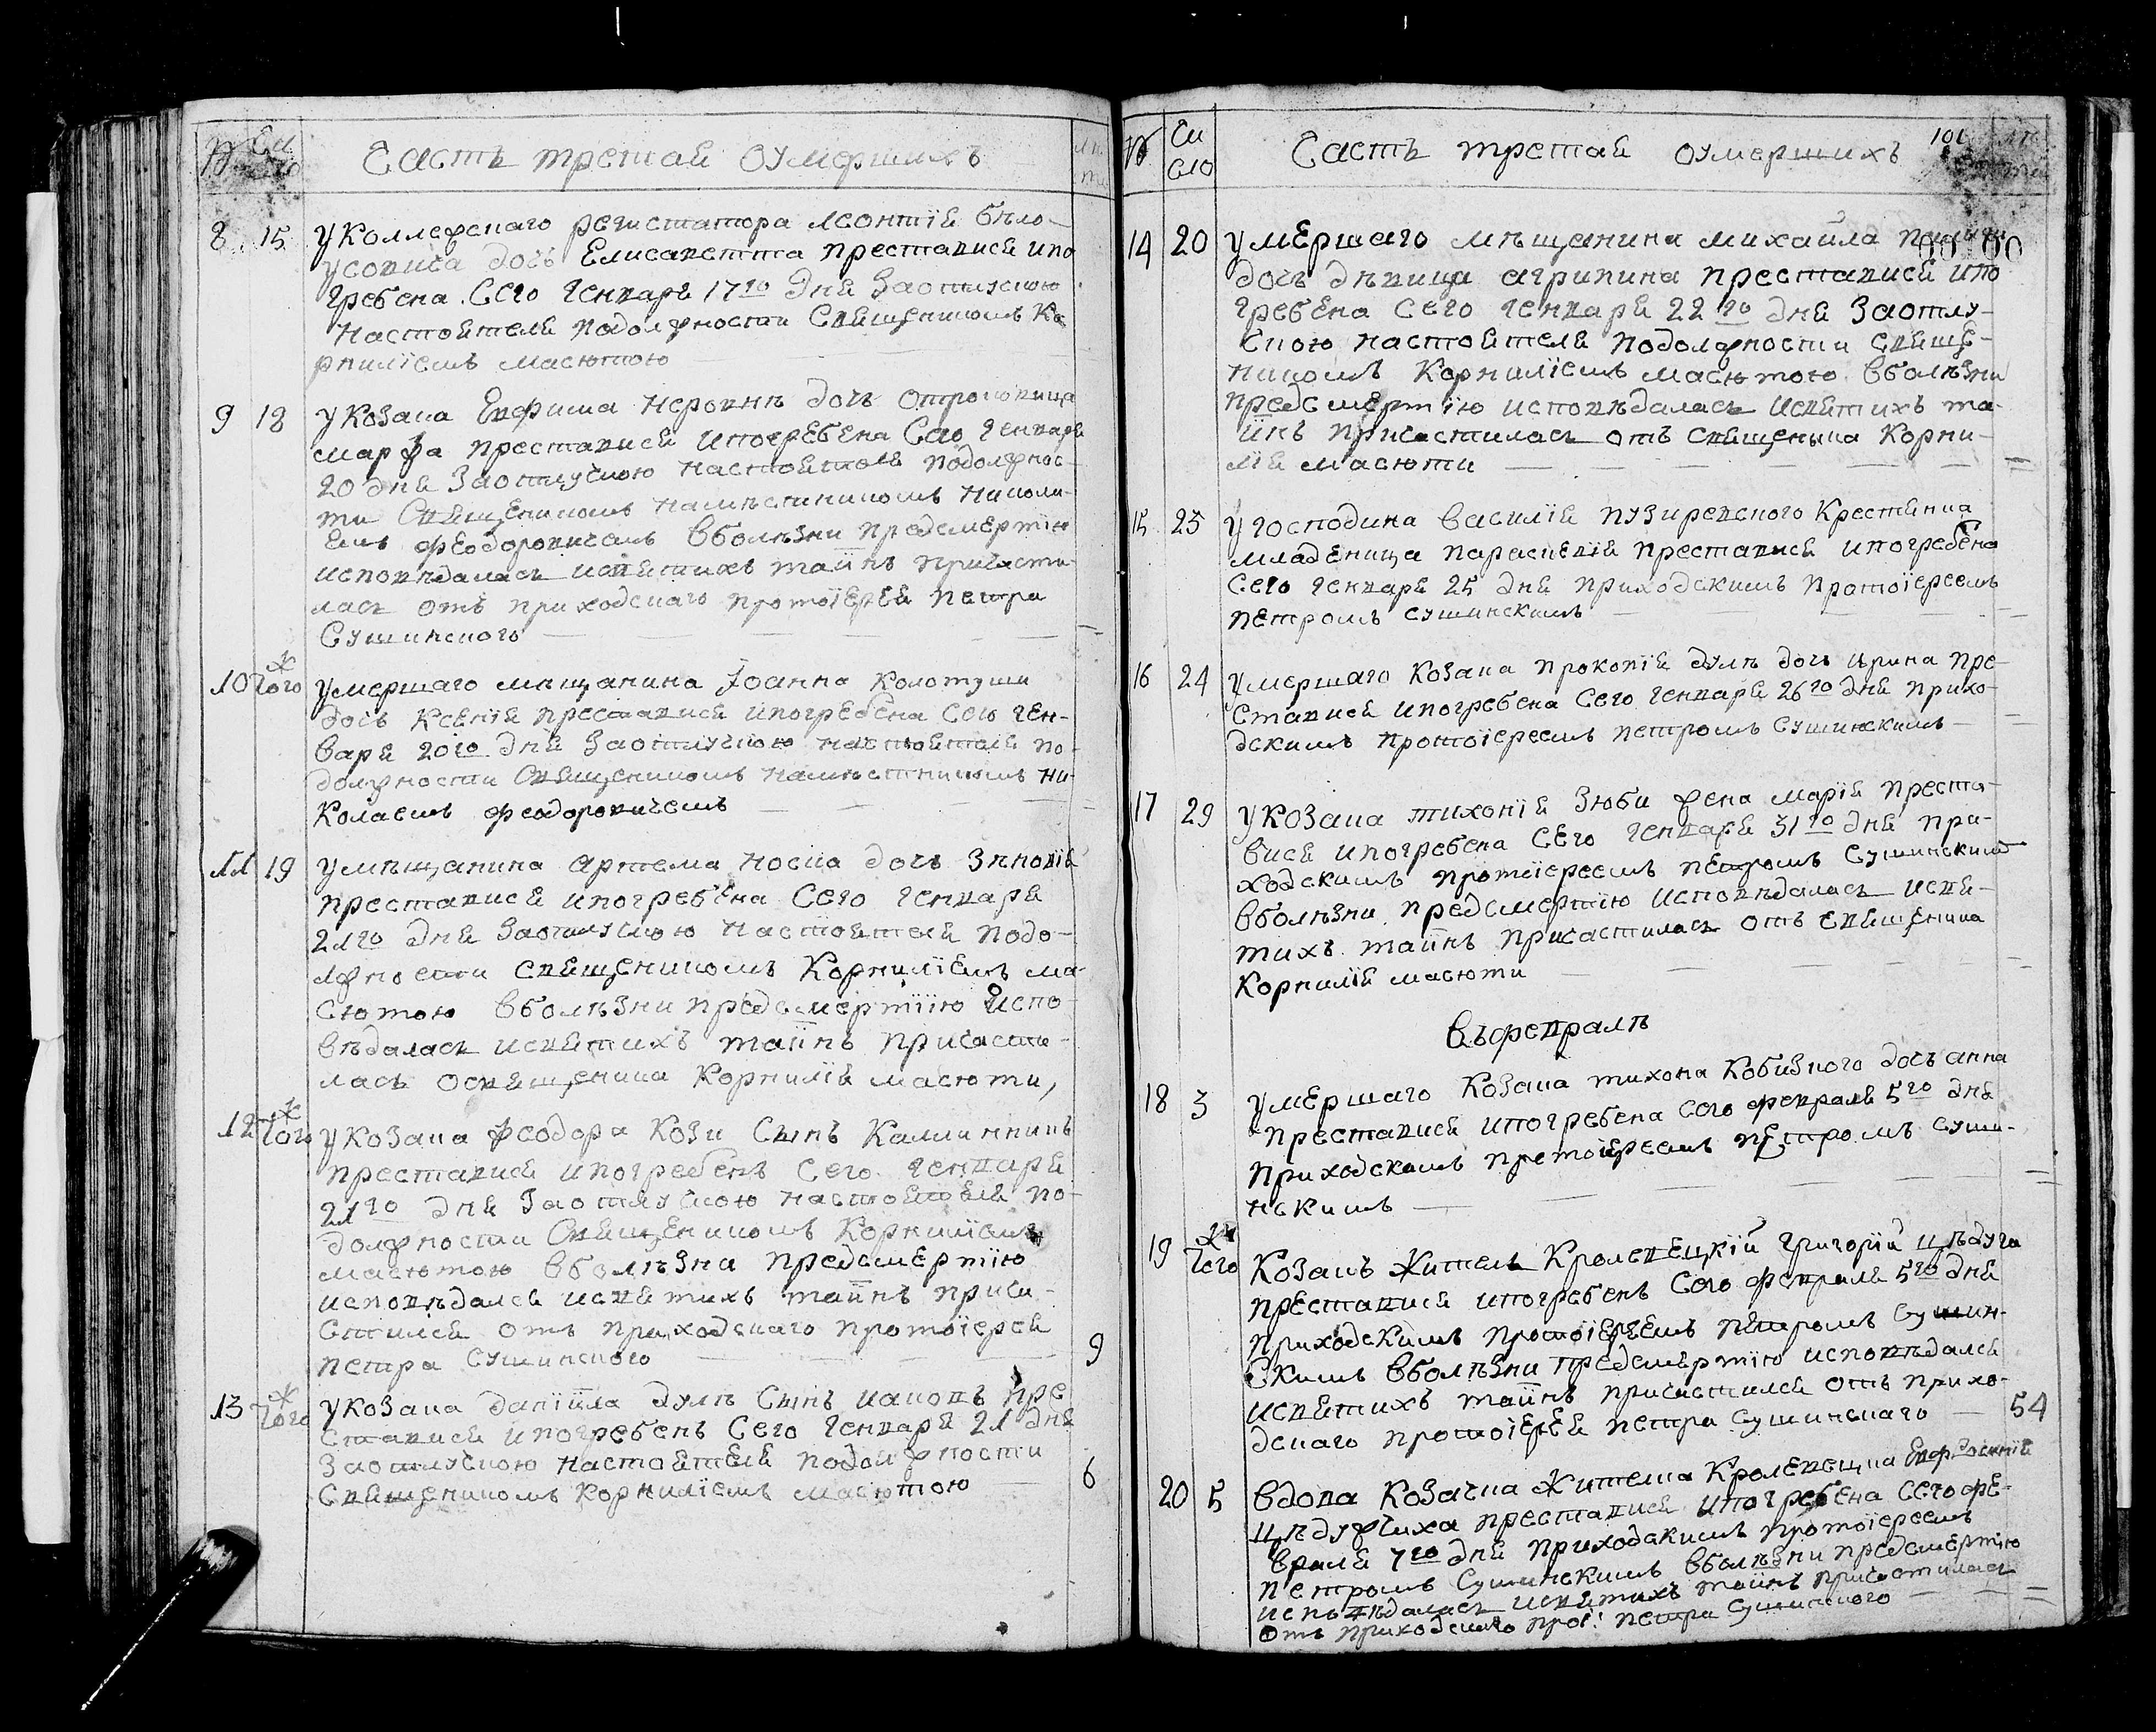 № Чи
сло
Часть третая оумершихъ
8 15 У Коллежскаго регистатора Леонтія Бѣло-
усовича дочь Елисаветта преставися ипо
гребена Сего Генваря 17го дня Заотлучкою
настоятеля подолжности Священикомъ Ко
рнилїемъ Масютою
9 18 У Козака Евфима Неровнѣ дочь Отроковица
Марфа преставися ипогребена Сего Генваря
20 дня Заотлучкою настоятеля подолжнос-
ти Священикомъ намѣстникомъ Никола-
емъ Феодоровичемъ Вболѣзни предсмертїю
исповѣдалась исвятихъ таинъ причасти-
лась отъ приходскаго протоїерея Петра
Сушинского
10 Тогож Умершаго мѣщанина Іоанна Колотуши
дочь Ксенїя преставися ипогребена Сего Ген-
варя 20го дня Заотлучкою настоятеля по-
должности Священикомъ намѣстникомъ Ни-
колаемъ Феодоровичемъ
11 19 У мѣщанина Артема Носка дочь Зѣновїя
преставися ипогребена Сего Генваря
21го дня Заотлучкою настоятеля подо-
лжности священикомъ Корнилїемъ Ма-
сютою Вболѣзни предсмертїїю Испо-
вѣдалась исвятихъ таинъ причасти-
лась освященика Корнилїя Масюти,
12 Тогож У Козака Феодора Кози Сынъ Каллинникъ
преставися ипогребенъ Сего Генваря
21го дня Заотлучкою настоятеля по-
должности Священикомъ Корнилїемъ
Масютою Вболѣзна предсмертїю
исповѣдался исвятихъ таинъ прича-
стился отъ приходскаго протоїерея
Петра Сушинского 9
13 Тогож У Козака Данїила Дулѣ Сынъ Іаковъ пре
ставися ипогребенъ Сего Генваря 21 дня
Заотлучкою настоятеля подолжности
Священикомъ Корнилїемъ Масютою 6
№ Чи
сло
Часть третая оумершихъ
14 20 Умершаго мѣщанина Михайла
дочь дѣвица Агрипина преставися ипо
гребена Сего Генваря 22го дня Заотлу-
чкою настоятеля подолжности свяще-
никомъ Корнилїемъ Масютою Вболѣзни
предсмертїю исповѣдалась исвятихъ та-
їнъ причастилась отъ священика Корни-
лїя Масюти
15 25 У господина Василїя Пузиревского Крестянка
младеница Параскевїя преставися ипогребена
Сего Генваря 25 дня приходскимъ протоїереемъ
Петромъ Сушинскимъ
16 24 Умершаго Козака Прокопїя Дулѣ дочь Ирина пре-
ставися ипогребена Сего Генваря 26го дня прихо-
дскимъ протоїереемъ Петромъ Сушинскимъ
17 29 У Козака Тихонїя Зюби жена Марїя преста-
вися ипогребена Сего Генваря 31го дня при-
ходскимъ протоїереемъ Петромъ Сушинскимъ
Вболѣзни предсмертїю исповѣдалась исвя-
тихъ таинъ причастилась отъ священика
Корнилїя Масюти
Въ февралѣ
18 3 Умершаго Козака Тихона Кобизкого дочь Анна
преставися ипогребена Сего февраля 5го дня
приходскимъ протоїереемъ Петромъ Суши-
нскимъ
19 Тогож Козакъ Житель Кролевецкїй Григорїй Цѣдуга
преставися ипогребенъ Сего февраля 5го дня
приходскимъ протоїереемъ Петромъ Сушин-
скимъ Вболѣзни предсмертїю исповѣдался
исвятихъ таинъ причастился отъ прихо-
дскаго протоїерея Петра Сушинскаго 54
20 5 Вдова Козачка Жителка Кролевецка Евфросинїя
Цѣдужчиха преставися ипогребена Сего фе-
враля 7го дня приходскимъ протоїереемъ
Петромъ Сушинскимъ Вболѣзни предсмертїю
исповѣдалась исвятихъ таинъ причастилась
отъ приходского про: Петра Сушинского